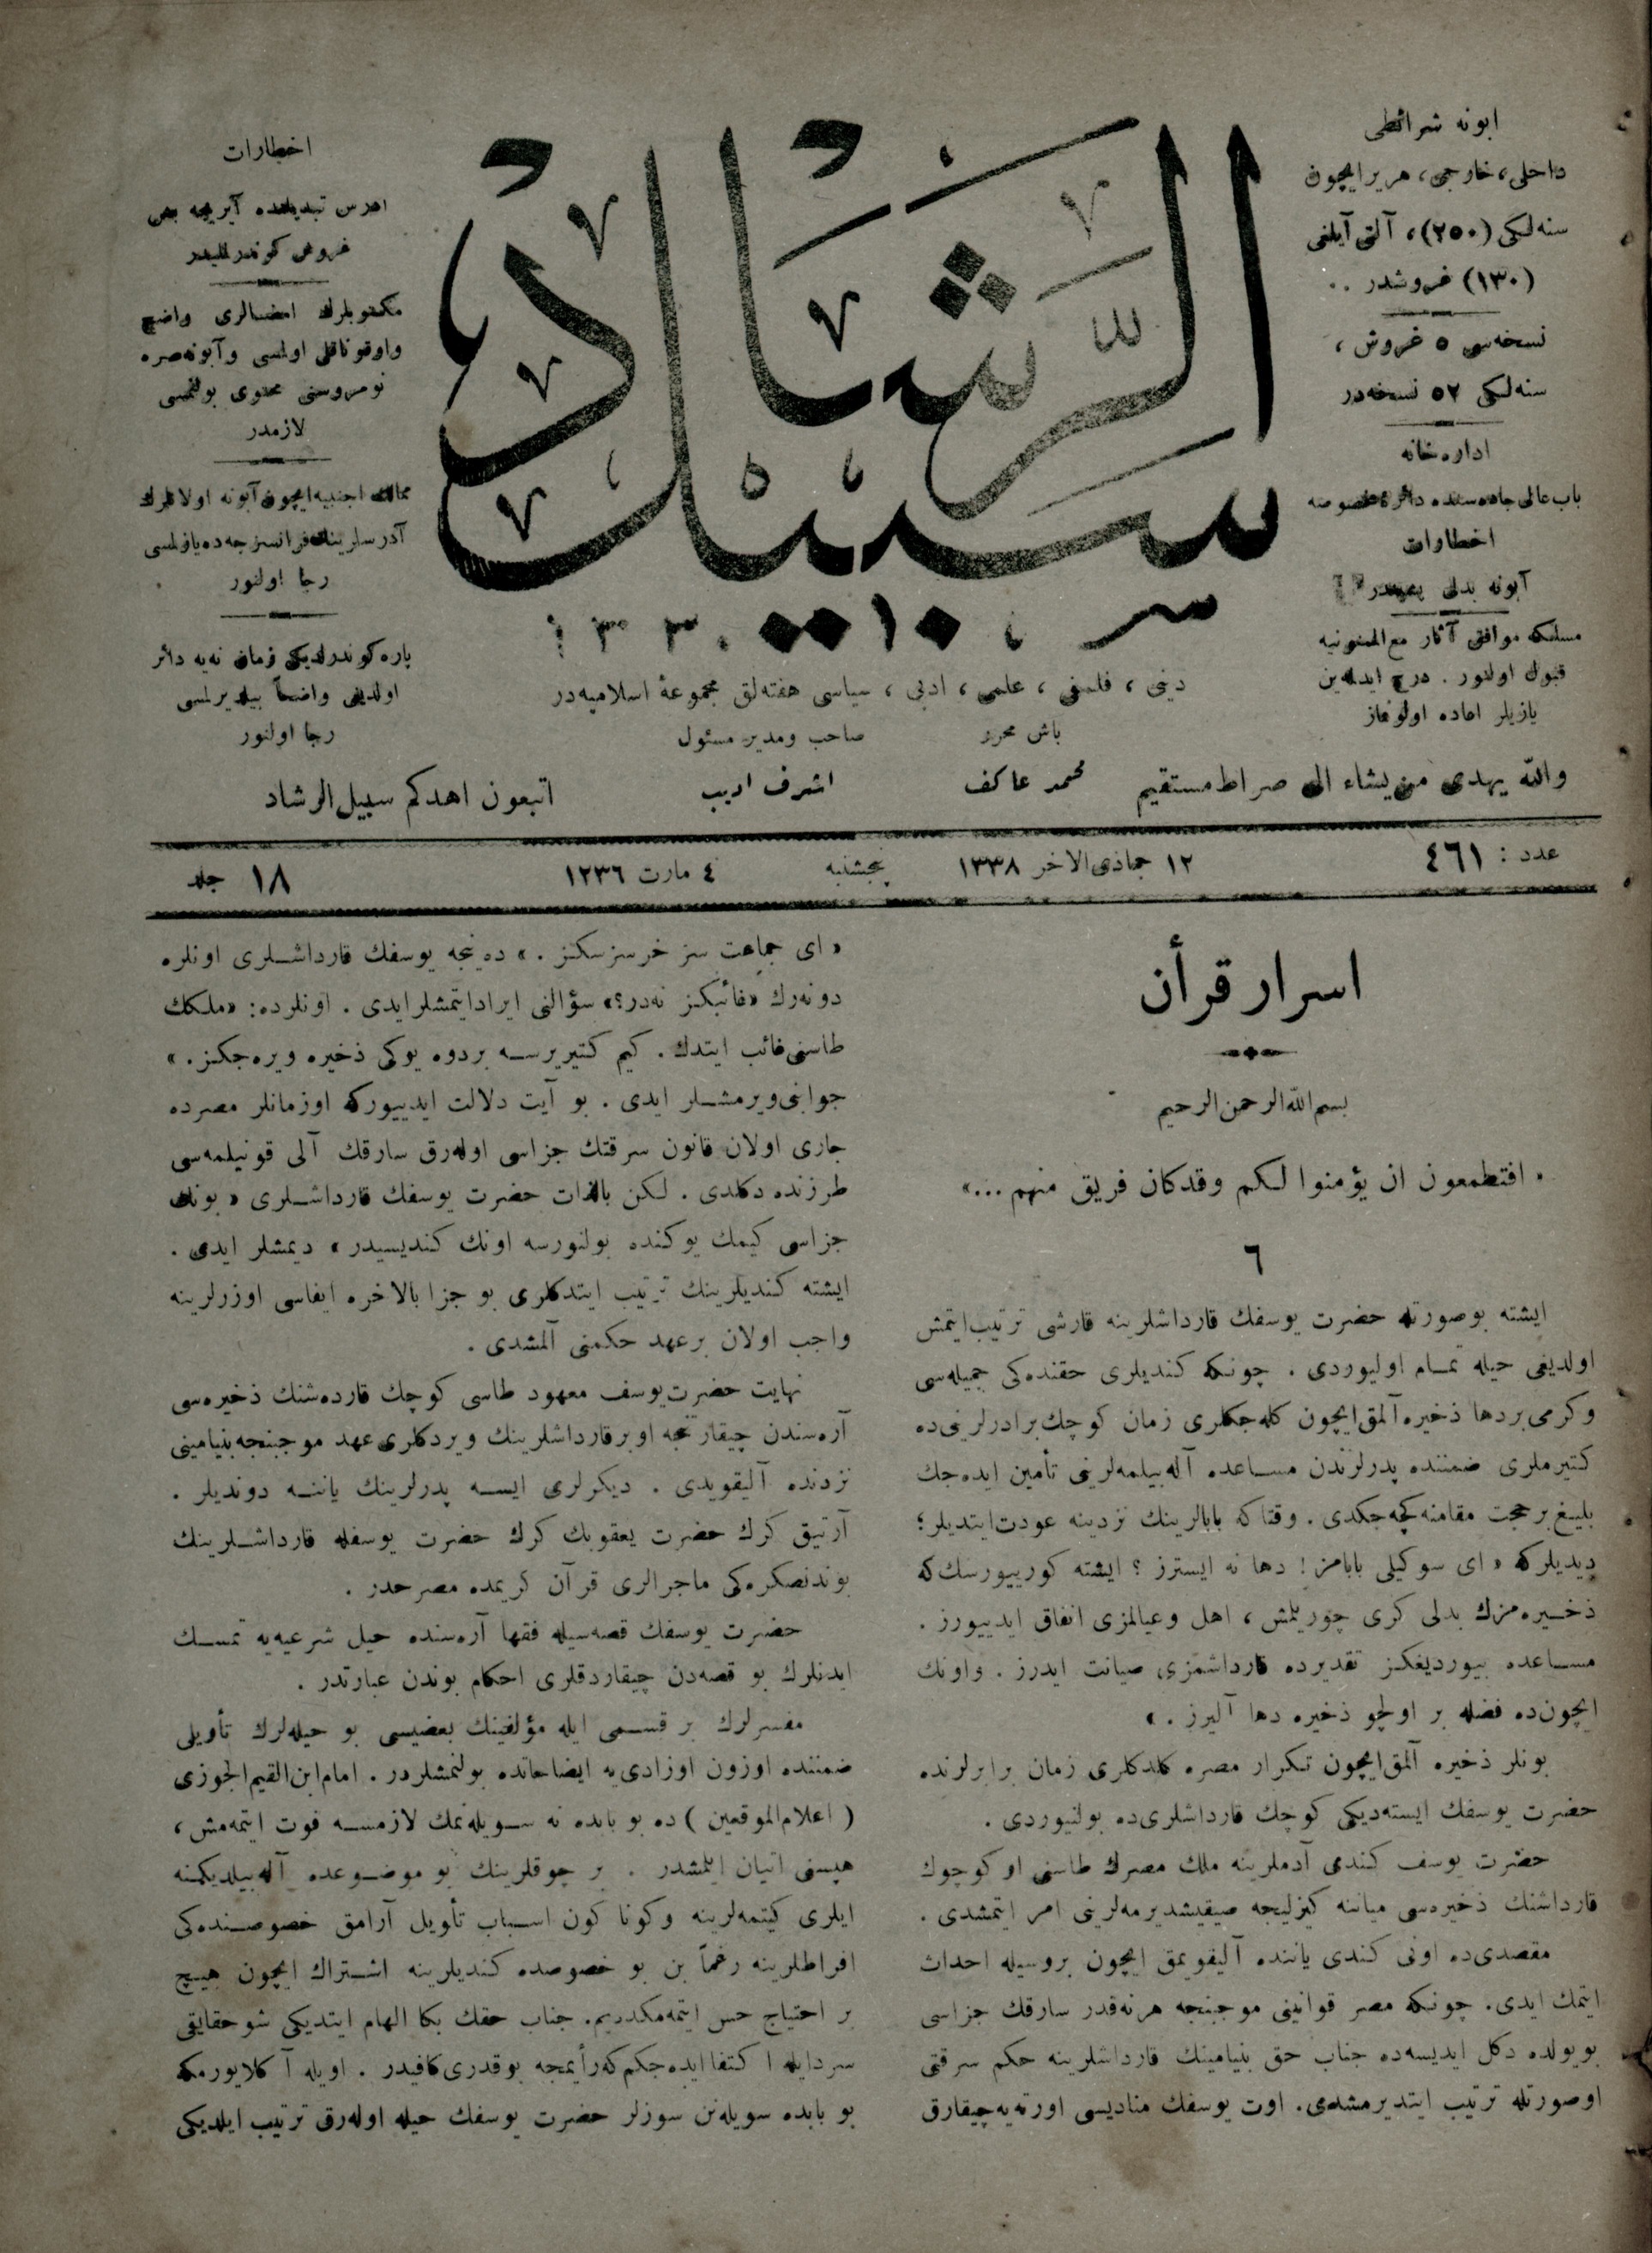 ابونه شرائطی
داخلی، خارجی، هر یر ایچون
سنه لکی (٢٥٠)، آلتی آیلغی
(١٣٠) غروشدر . .
نسخه سی ٥ غروش ،
سنه لکی ٥٢ نسخه در
اداره خانه
باب عالی جاده سنده دائرهٔ مخصوصه
اخطارات
آبونه بدلی پشیندر
مسلکه موافق آثار مع الممنونیه
قبول اولنور . درج ایدلمه ین
یازیلر اعاده اولونماز
سبیل الرشاد
سر ١٣٣٠
دینی ، فلسفی ، علمی ، ادبی ، سیاسی هفته لق مجموعهٔ اسلامیه در
باش محرر
صاحب ومدیر مسئول
محمد عاکف
اشرف ادیب
والله یهدی من یشاء الی صراط مستقیم
اتبعون اهدکم سبیل الرشاد
اخطارات
آدرس تبدیلنده آیریجه بش
غروش کوندرلملیدر
مکتوبلرك امضالری واضح
واوقوناقلی اولمسی وآبونه صره
نومروسنی محتوی بولنمسی
لازمدر
ممالك اجنبیه ایچون آبونه اولانلرك
آدرسلرینك فرانسزجه ده یازلمسی
رجا اولنور
پاره کوندرلدیکی زمان نه یه دائر
اولدیغی واضحاً بیلدیرلمسی
رجا اولنور
عدد : ٤٦١
١٢ جماذی الاخر ١٣٣٨
پنجشنبه
٤ مارت ١٣٣٦
جلد ١٨
اسرار قرأن
بسم الله الرحمن الرحیم
« افتطمعون ان یؤمنوا لکم وقدکان فریق منهم ...»
٦
ایشته بوصورتله حضرت یوسفك قارداشلرینه قارشی ترتیب ایتمش
اولدیغی حیله تمام اولیوردی . چونکه کندیلری حقنده کی جمیله سی
وکرمی بردها ذخیره آلمق ایچون کله جکلری زمان کوچك برادرلرینی ده
کتیرملری ضمننده پدرلرندن مساعده آله بیلمه لرینی تأمین ایده جك
بلیغ بر حجت مقامنه کچه جکدی . وقتاکه بابالرینك نزدینه عودت ایتدیلر ؛
دیدیلرکه « ای سوکیلی بابامز ! دها نه ایسترز ؟ ایشته کورییورسك که
ذخیره مزك بدلی کری چوریلمش ، اهل وعیالمزی انفاق ایدییورز .
مساعده بیوردیغکز تقدیرده قارداشمزی صیانت ایدرز . واونك
ایچون ده فضله بر اولچو ذخیره دها آلیرز . »
بونلر ذخیره آلمق ایچون تکرار مصره کلدکلری زمان برابرلرنده
حضرت یوسفك ایسته دیکی کوچك قارداشلری ده بولنیوردی .
حضرت یوسف کندی آدملرینه ملك مصرك طاسنی او کوچوك
قارداشنك ذخیره سی میاننه کیزلیجه صیقیشدیرمه لرینی امر ایتمشدی .
مقصدی ده اونی کندی یاننده آلیقویمق ایچون بروسیله احداث
ایتمك ایدی. چونکه مصر قوانینی موجبنجه هرنه قدر سارقك جزاسی
بویولده دکل ایدیسه ده جناب حق بنیامینك قارداشلرینه حکم سرقتی
اوصورتله ترتیب ایتدیرمشدی. اوت یوسفك منادیسی اورته یه چیقارق
« ای جماعت سز خرسزسکز . » ده ینجه یوسفك قارداشلری اونلره
دونه رك «غائبکز نه در؟» سؤالنی ایراد ایتمشلرایدی . اونلرده: «ملکك
طاسنی غائب ایتدك . کیم کتیریرسه بردوه یوکی ذخیره ویره جکز . »
جوابنی ویرمشلر ایدی . بو آیت دلالت ایدییورکه اوزمانلر مصرده
جاری اولان قانون سرقتك جزاسی اوله رق سارقك آلی قونیلمه سی
طرزنده دکلدی . لکن بالذات حضرت یوسفك قارداشلری « بونك
جزاسی کیمك یوکنده بولنورسه اونك کندیسیدر » دیمشلر ایدی .
ایشته کندیلرینك ترتیب ایتدکلری بو جزا بالاخره ایفاسی اوزرلرینه
واجب اولان برعهد حکمنی آلمشدی .
نهایت حضرت یوسف معهود طاسی کوچك قارده شنك ذخیره سی
آره سندن چیقارنجه اوبرقارداشلرینك ویردکلری عهد موجبنجه بنیامینی
نزدنده آلیقویدی . دیکرلری ایسه پدرلرینك یاننه دوندیلر .
آرتیق کرك حضرت یعقوبك کرك حضرت یوسفله قارداشلرینك
بوندنصکره کی ماجرالری قرآن کریمده مصرحدر .
حضرت یوسفك قصه سیله فقها آره سنده حیل شرعیه یه تمسك
ایدنلرك بو قصه دن چیقاردقلری احکام بوندن عبارتدر .
مفسرلرك بر قسمی ایله مؤلفینك بعضیسی بو حیله لرك تأویلی
ضمننده اوزون اوزادی یه ایضاحاتده بولنمشلردر . امام ابن القیم الجوزی
( اعلام الموقعین ) ده بو بابده نه سویله نمك لازمسه فوت ایتمه مش ،
هپسنی اتیان ایلمشدر . بر چوقلرینك بو موضوعده آله بیلدیکنه
ایلری کیتمه لرینه وکونا کون اسباب تأویل آرامق خصوصنده کی
افراطلرینه رغماً بن بو خصوصده کندیلرینه اشتراك ایچون هیچ
بر احتیاج حس ایتمه مکده یم. جناب حقك بکا الهام ایتدیکی شو حقایقی
سرد ایله اکتفا ایده جکم که رأیمجه بوقدری کافیدر . اویله آکلایورمکه
بو بابده سویله نن سوزلر حضرت یوسفك حیله اوله رق ترتیب ایلدیکی